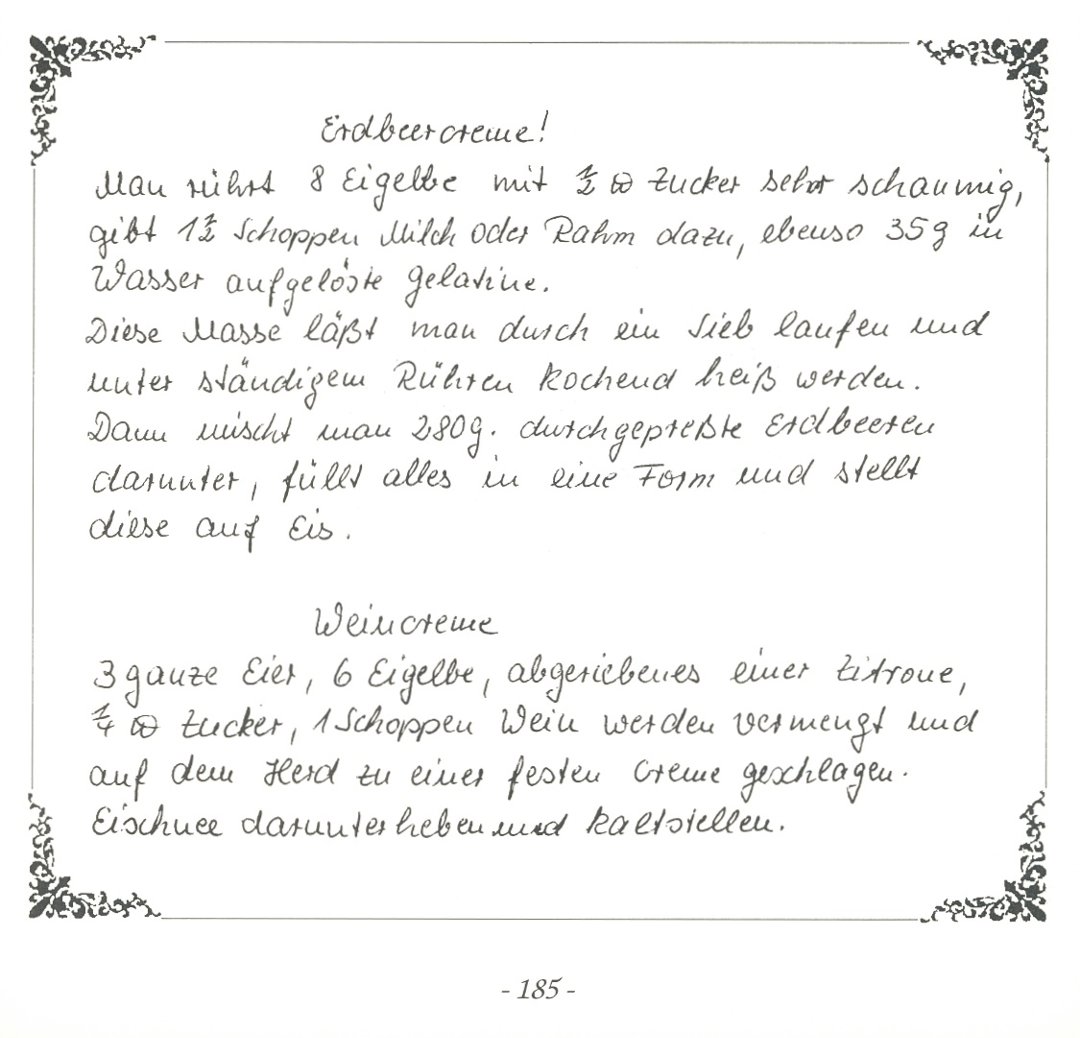 Erdbeercreme!
Man rührt 8 Eigelbe mit ½ ℔ Zucker sehr schaumig,
gibt 1½ Schoppen Milch oder Rahm dazu, ebenso 35g in
Wasser aufgelöste Gelatine.
Diese Masse läßt man durch ein Sieb laufen und
unter ständigem Rühren kochend heiß werden.
Dann mischt man 280g. durchgepreßte Erdbeeren
darunter, füllt alles in eine Form und stellt
diese auf Eis.
Weincreme
3 ganze Eier, 6 Eigelbe, abgeriebenes einer Zitrone,
¼ ℔ Zucker, 1 Schoppen Wein werden vermengt und
auf dem Herd zu einer festen Creme geschlagen.
Eischnee darunterheben und kaltstellen.
- 185 -